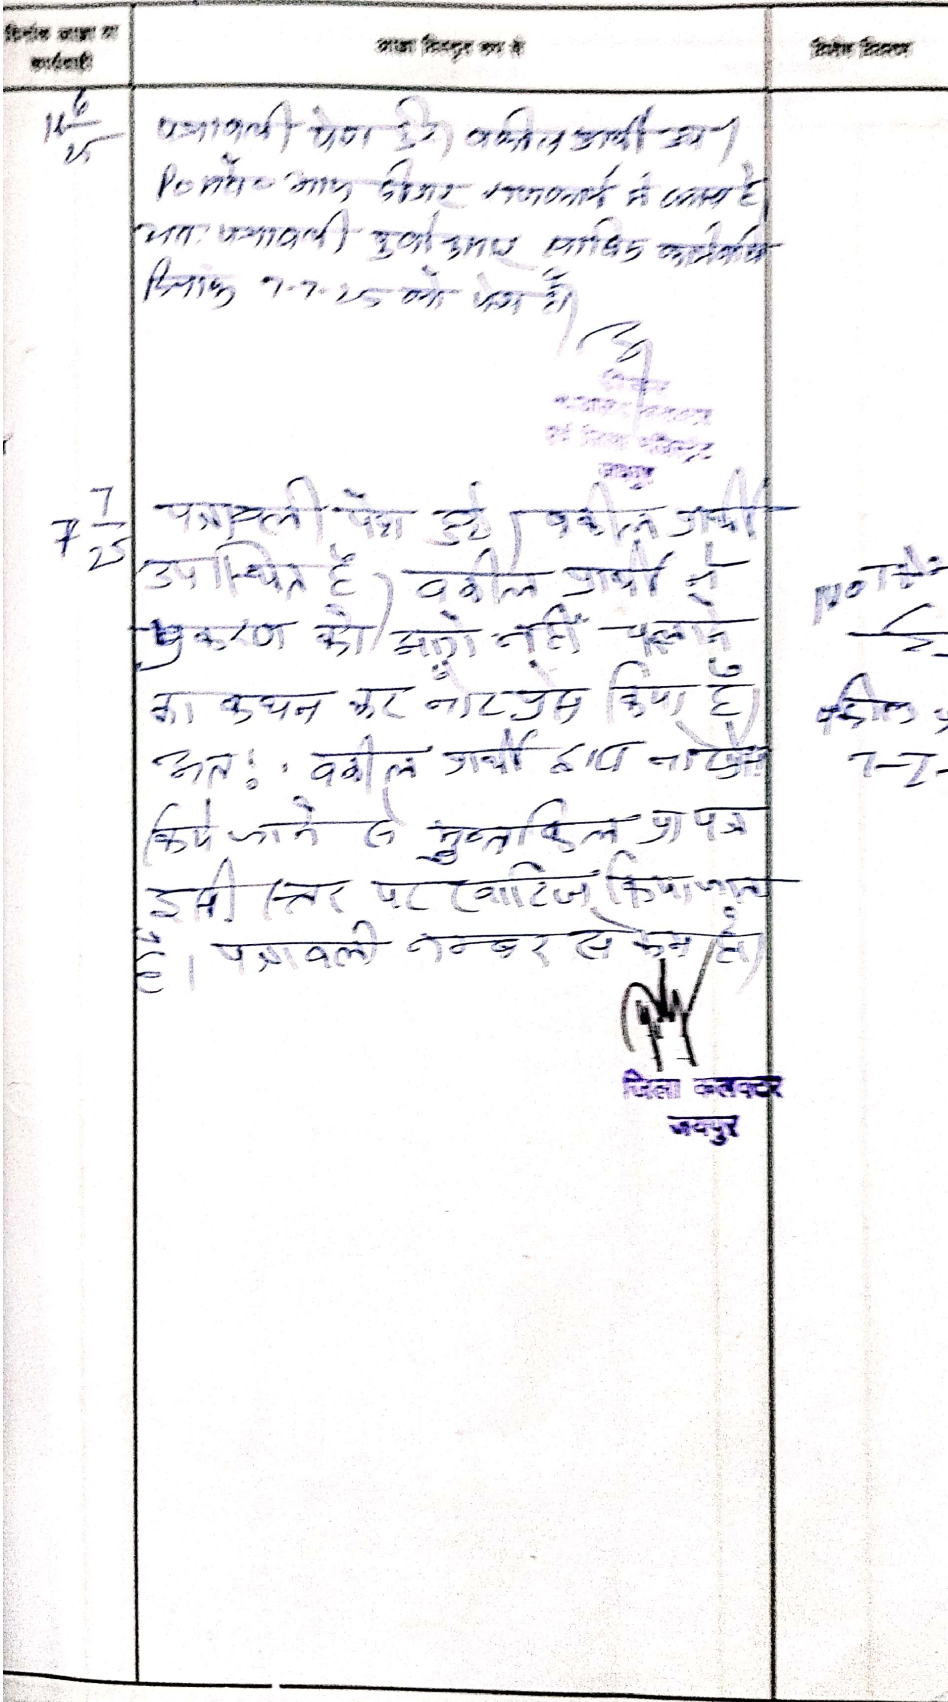 दिनांक आज्ञा या
कार्यवाही
आज्ञा विस्तृत रूप से
विशेष विवरण
16/6/25
पत्रावली पेश हुई। वकील प्रार्थी उप।
P.O. महो० अन्य राजकार्य में व्यस्त है,
अतः पत्रावली पूर्वानुसार
दिनांक 7-7-25 को पेश हो।
एवं जिला मजिस्ट्रेट
जयपुर
7/7/25
पत्रावली पेश हुई। वकील प्रार्थी
उपस्थित है। वकील प्रार्थी ने
प्रकरण को आगे नहीं चलाने
का कथन कर नोटप्रेस किया है।
अतः वकील प्रार्थी द्वारा नोटप्रेस
किये जाने से मुन्तकिल प्रा पत्र
इसी स्तर पर खारिज किया जाता
है। पत्रावली नम्बर से कम हो।
जिला कलक्टर
जयपुर
वकील
7-7-